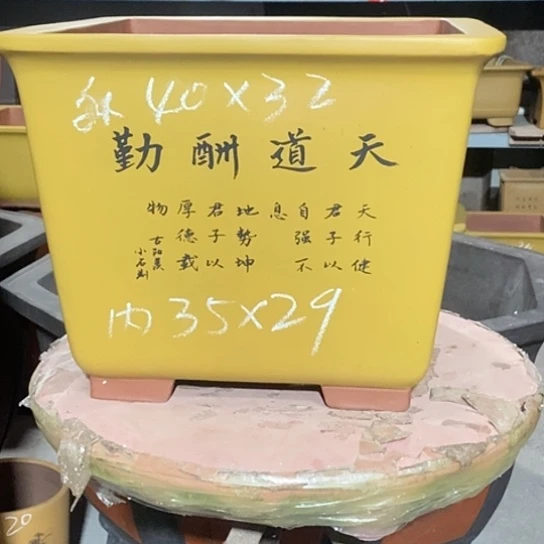 外 40×32
天道酬勤
天行健
君子以
自强不
息
地勢坤
君子以
厚德載
物
小石刻
内 35×29
20